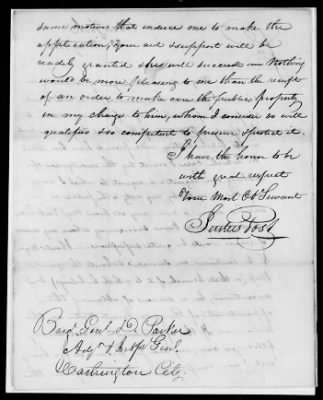 same motives that induce one to make the
application, your aid & support will be
readily granted & he will succeed — Nothing
would be more pleasing to me than the receipt
of an order to make over the public property
in my charge to him, whom I consider so well
qualified & so competent to preserve & protect it.
I have the honor to be
with great respect
Your Most Ob Servant
Justus Post
Brig. Genl D. Parker
Adjt & Insp Genl.
Washington City